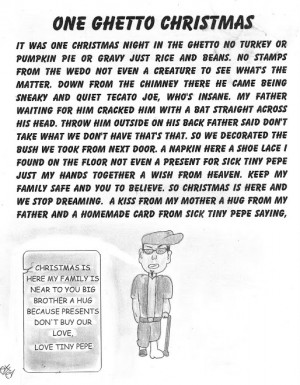 ONE GHETTO CHRISTMAS
IT WAS ONE CHRISTMAS NIGHT IN THE GHETTO NO TURKEY OR
PUMPKIN PIE OR GRAVY JUST RICE AND BEANS. NO STAMPS
FROM THE WEDO NOT EVEN A CREATURE TO SEE WHAT'S THE
MATTER. DOWN FROM THE CHIMNEY THERE HE CAME BEING
SNEAKY AND QUIET TECATO JOE, WHO'S INSANE. MY FATHER
WAITING FOR HIM CRACKED HIM WITH A BAT STRAIGHT ACROSS
HIS HEAD. THROW HIM OUTSIDE ON HIS BACK FATHER SAID DON'T
TAKE WHAT WE DON'T HAVE THAT'S THAT. SO WE DECORATED THE
BUSH WE TOOK FROM NEXT DOOR. A NAPKIN HERE A SHOE LACE I
FOUND ON THE FLOOR NOT EVEN A PRESENT FOR SICK TINY PEPE
JUST MY HANDS TOGETHER A WISH FROM HEAVEN. KEEP MY
FAMILY SAFE AND YOU TO BELIEVE. SO CHRISTMAS IS HERE AND
WE STOP DREAMING. A KISS FROM MY MOTHER A HUG FROM MY
FATHER AND A HOMEMADE CARD FROM SICK TINY PEPE SAYING,
CHRISTMAS IS
HERE MY FAMILY IS
NEAR TO YOU BIG
BROTHER A HUG
BECAUSE PRESENTS
DON'T BUY OUR
LOVE,
LOVE TINY PEPE